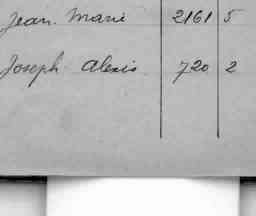 Jean. Marie 2161 5
Joseph. Alexis. 720 2